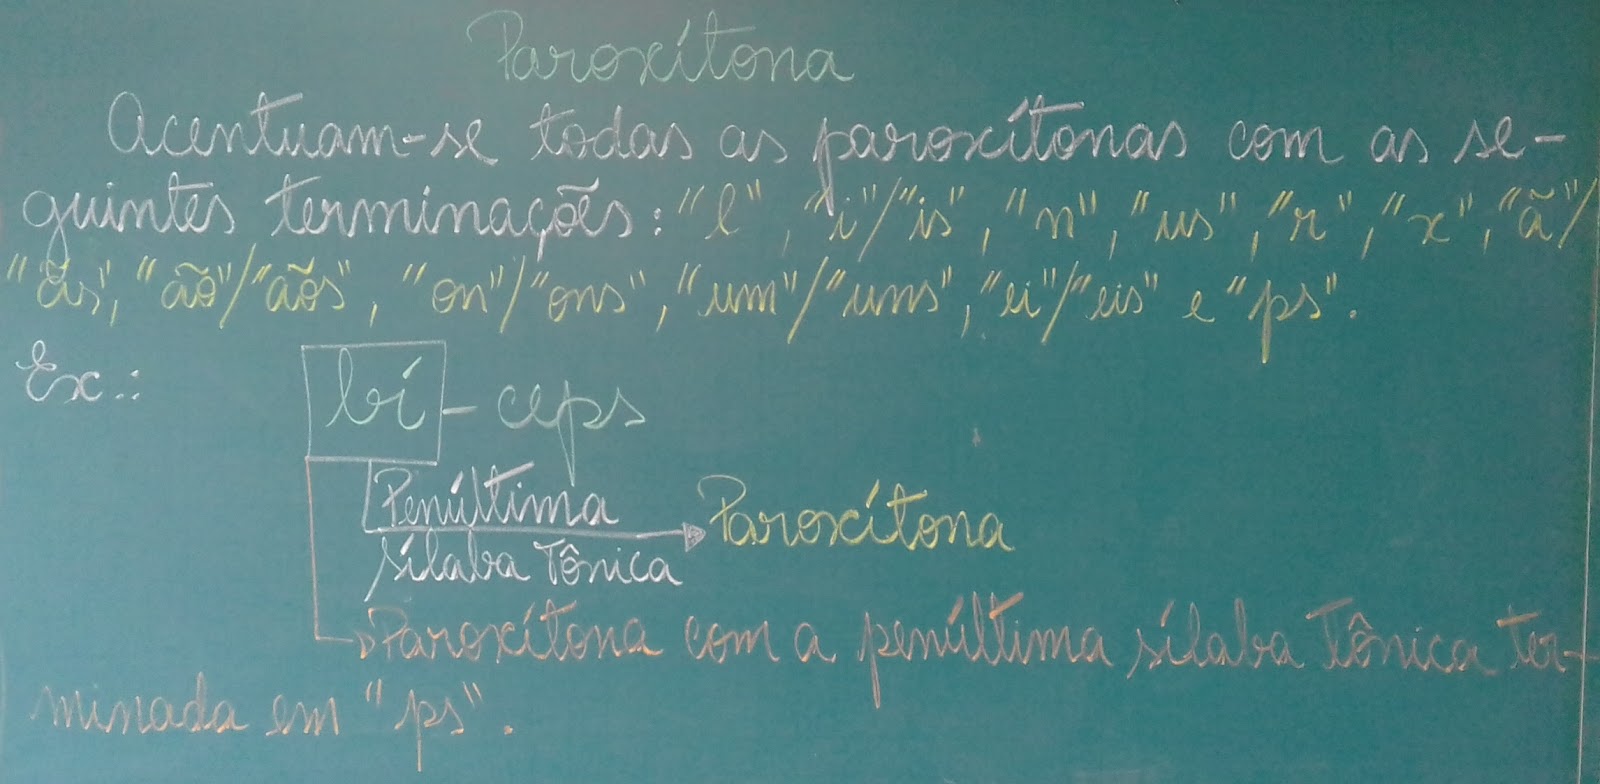 Paroxítona
Acentuam-se todas as paroxítonas com as se-
guintes terminações: "l", "i"/"is", "n", "us", "r", "x", "ã"/
"ãs", "ão"/"ãos", "on"/"ons", "um"/"uns", "ei"/"eis" e "ps".
Ex.:
bí - ceps
Penúltima
sílaba Tônica
Paroxítona
Paroxítona com a penúltima sílaba Tônica ter-
minada em "ps".